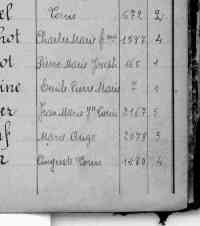 el Louis 672 2
hot Charles Marie fçois 1587 4
ot Pierre Marie Joseph 65 1
ine Emile Pierre Marie 7 1
er Jean Marie Louis 2167 5
f Marie Ange 2078 3
r Auguste Louis 1680 4